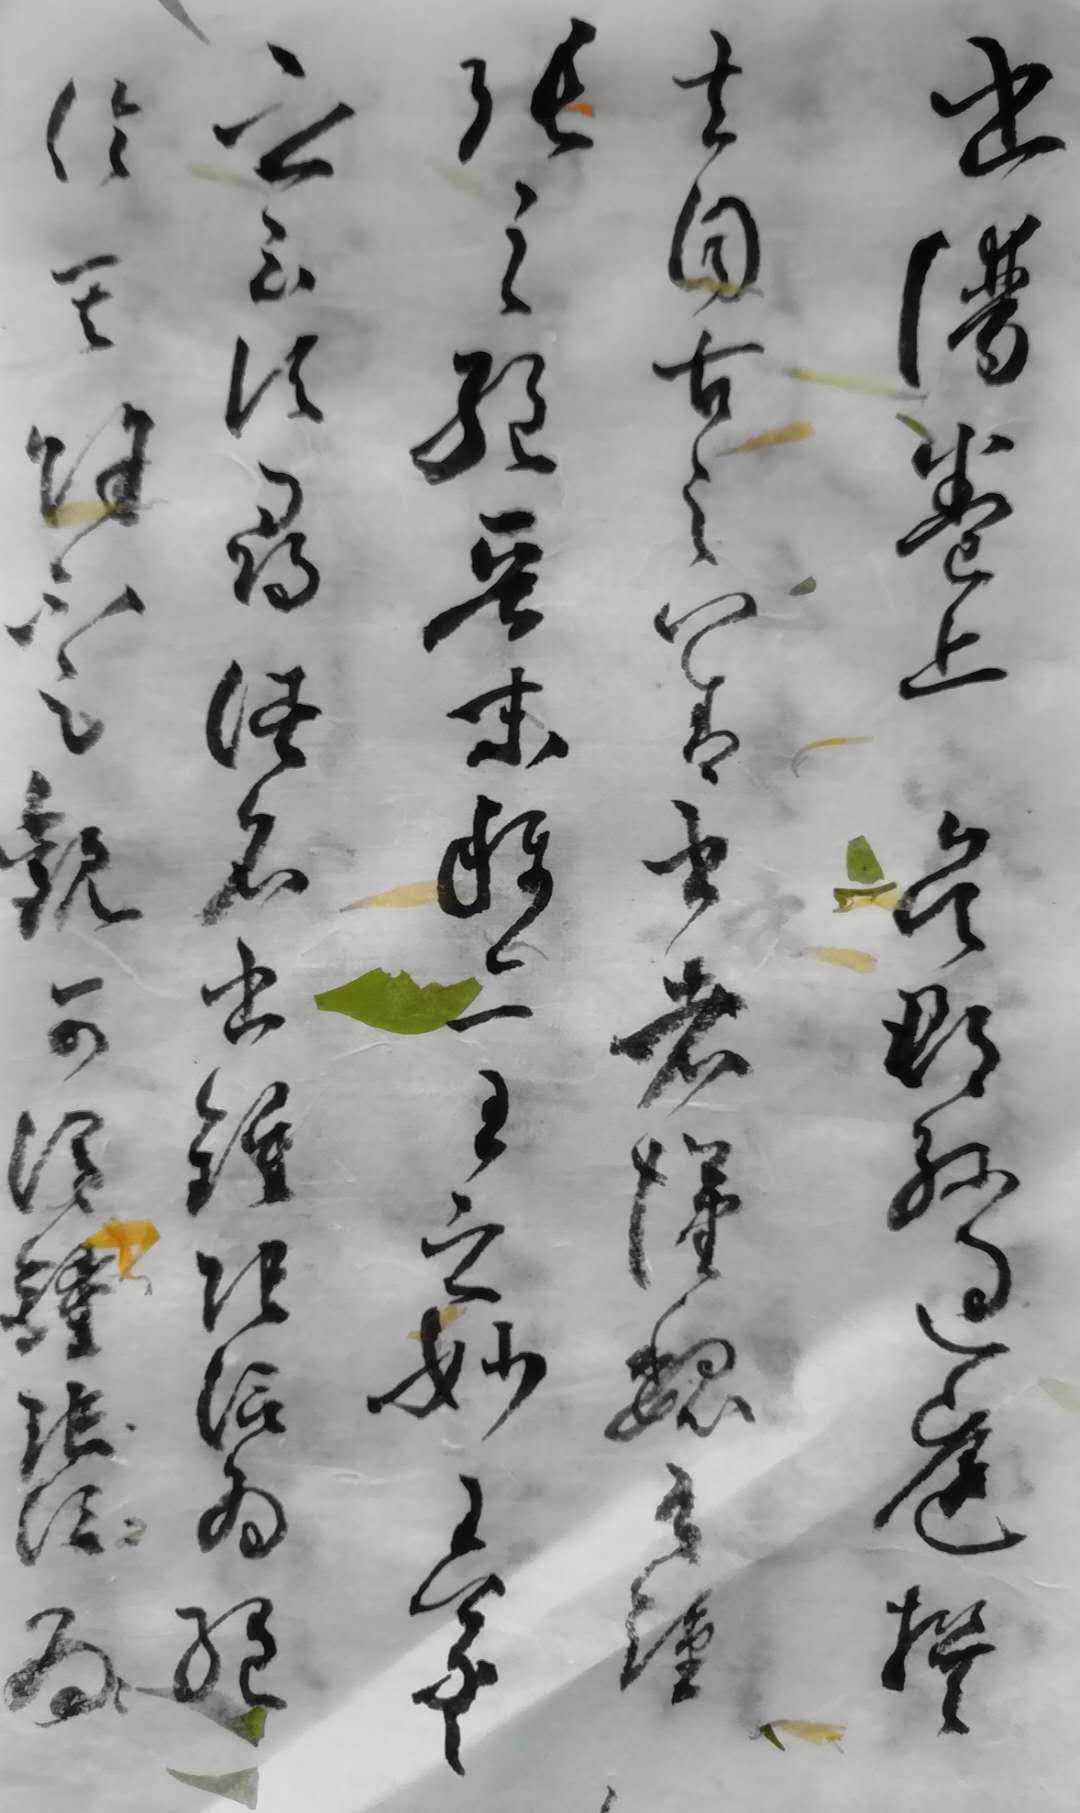 書譜卷上 吳郡孫過庭撰
夫自古之善書者漢魏有鍾
張之絕晉末稱二王之妙王羲
之云頃尋諸名書鍾張信為絕
倫其餘不足觀可謂鍾張信為